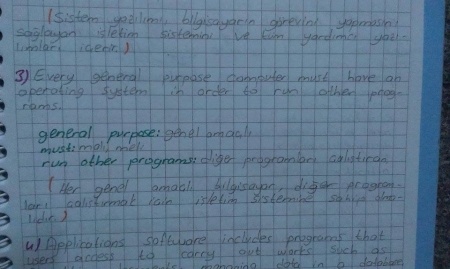 (Sistem yazılımı, bilgisayarın görevini yapmasını
sağlayan işletim sistemini ve tüm yardımcı yazı-
lımları içerir.)
3) Every general purpose computer must have an
operating system in order to run other prog-
rams.
general purpose: genel amaçlı
must: malı, meli
run other programs: diğer programları çalıştıran
(Her genel amaçlı bilgisayar, diğer program-
ları çalıştırmak için işletim sistemine sahip olma-
lıdır.)
4) Applications software includes programs that
users access to carry out works such as
managing data in a database